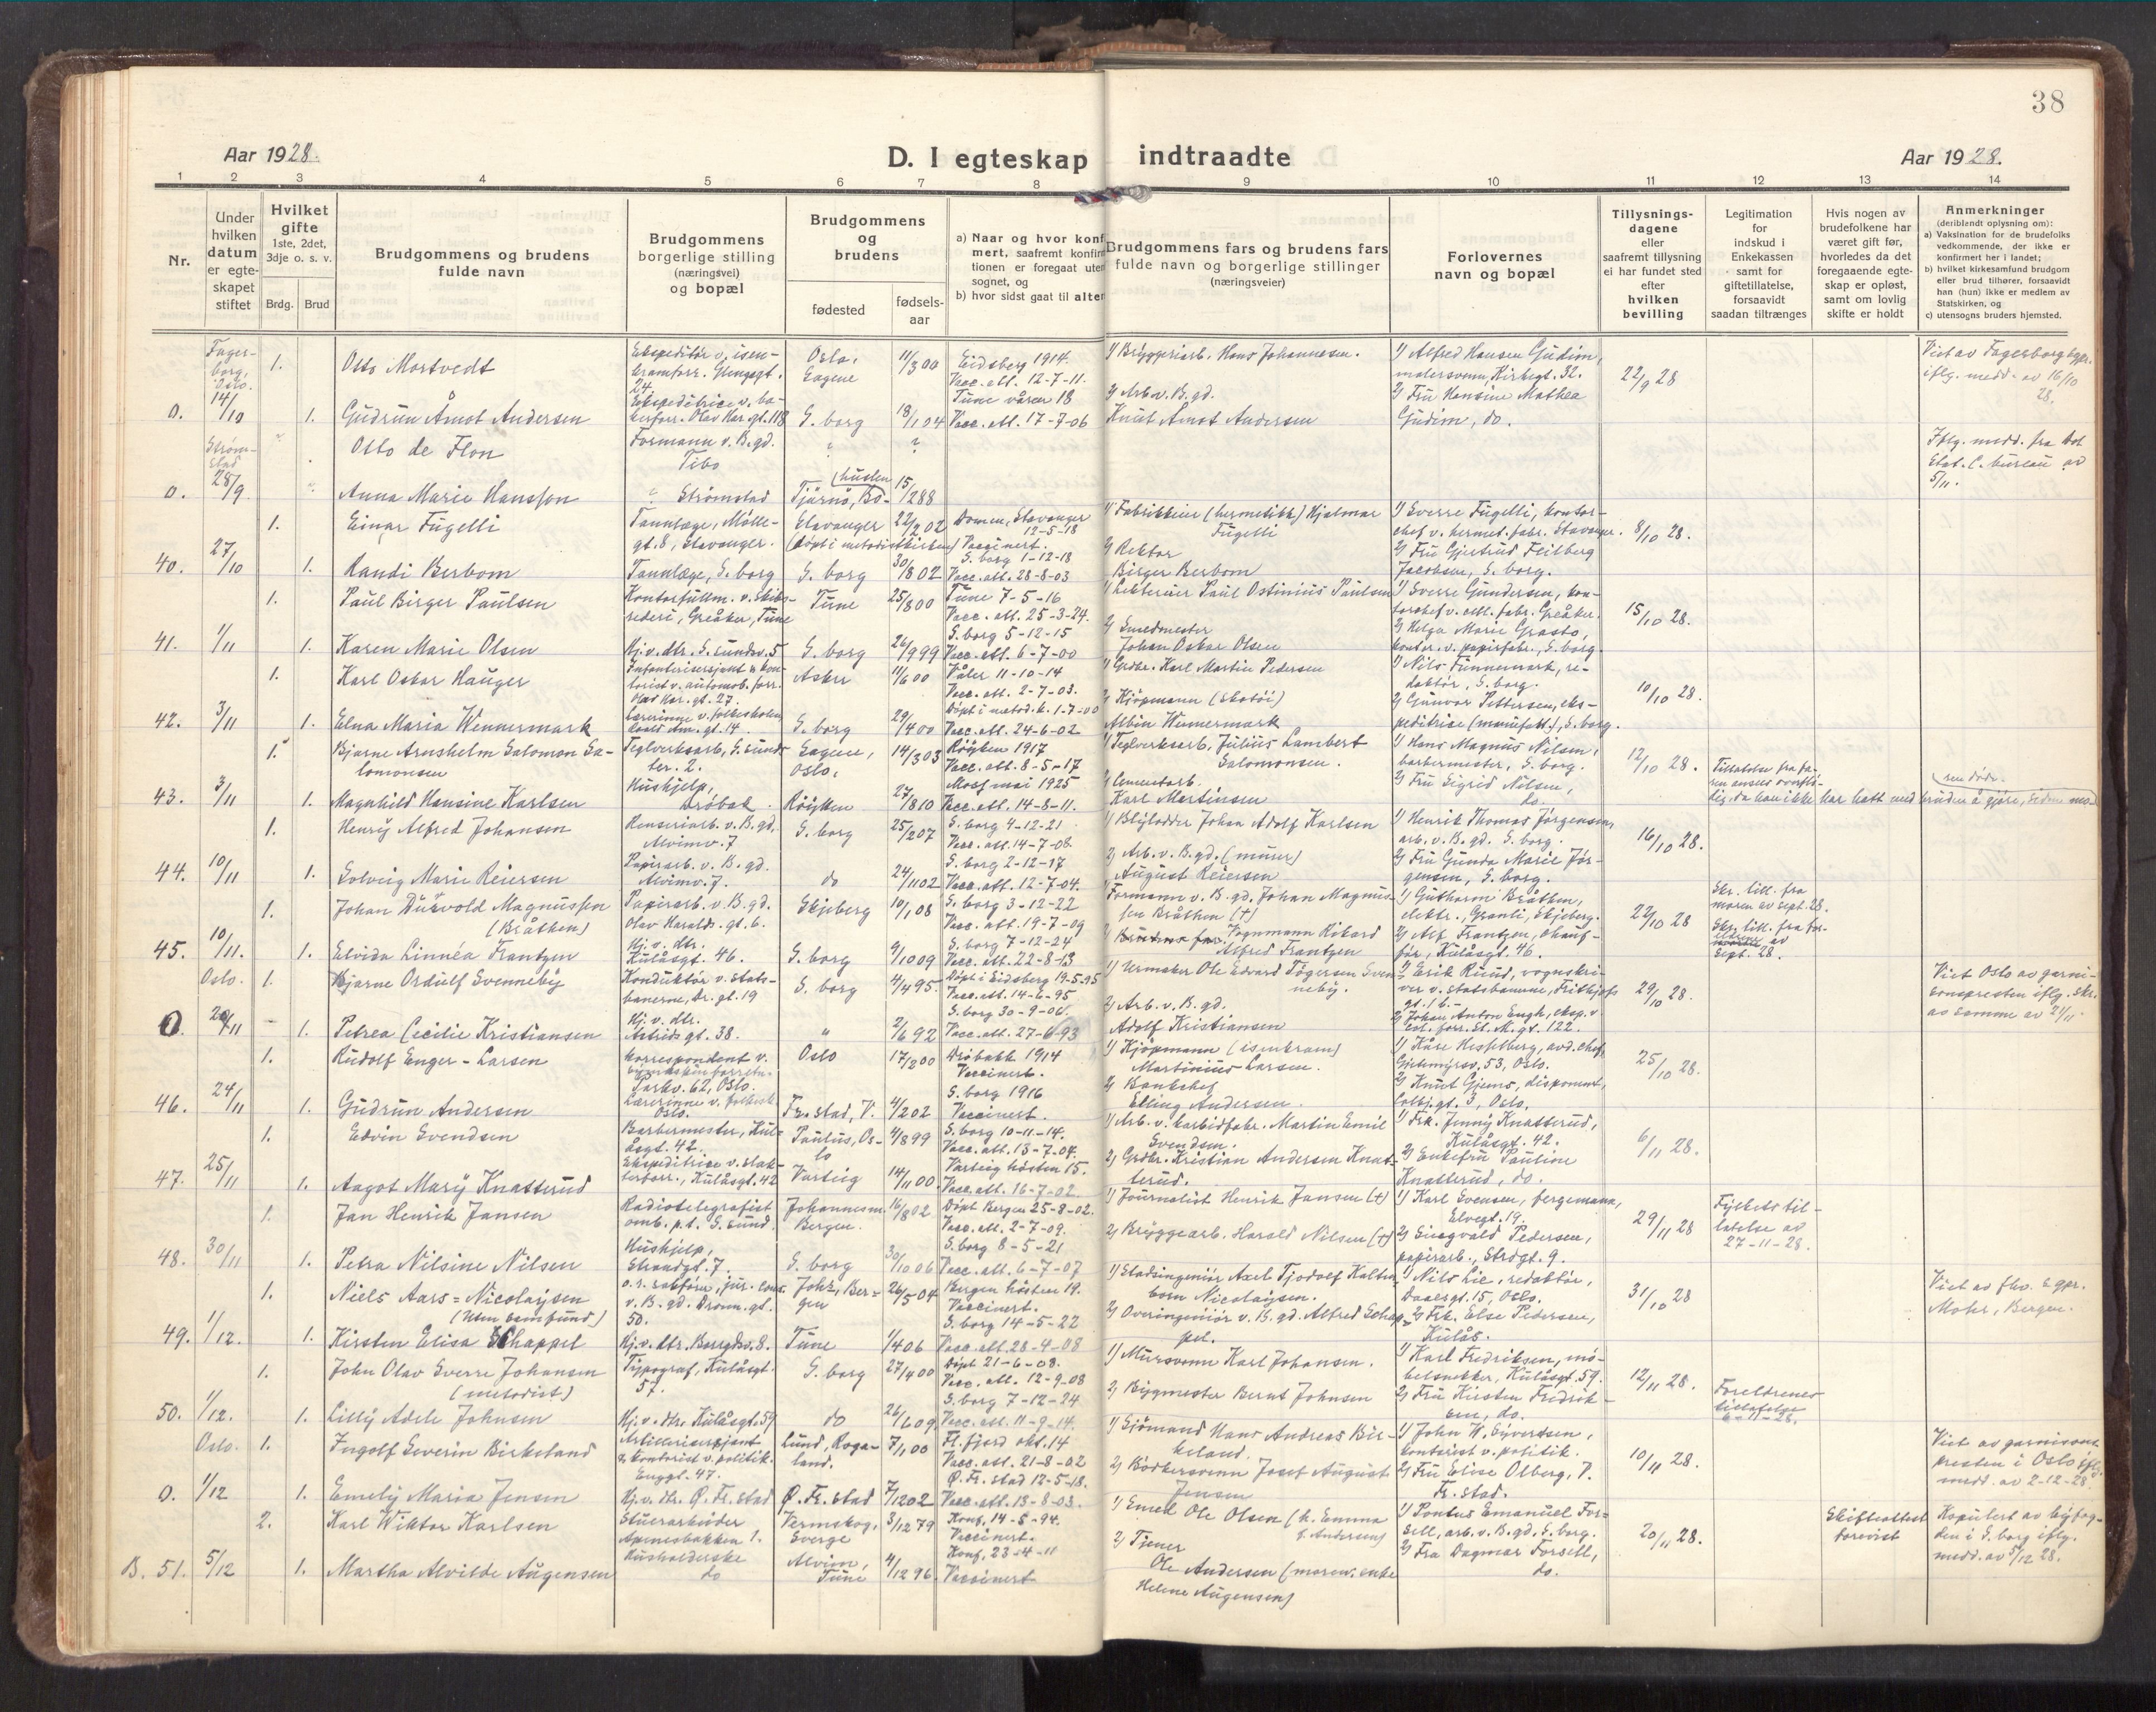 38
Aar 1928.
D. I egteskap indtraadte
Aar 1928.
1 2 3 4 5 6 7 8 9 10 11 12 13 14
Nr.
Under hvilken datum er egteskapet stiftet
Hvilket gifte
1ste, 2det, 3dje o. s. v.
Brdg. Brud
Brudgommens og brudens fulde navn
Brudgommens borgerlige stilling (næringsvei) og bopæl
Brudgommens og brudens
fødested
fødselsaar
a) Naar og hvor konf
mert, saafremt konfir
tionen er foregaat uten
sognet, og
b) hvor sidst gaat til alter
Brudgommens fars og brudens fars
fulde navn og borgerlige stillinger
(næringsveier)
Forlovernes
navn og bopæl
Tillysnings-
dagene
eller
saafremt tillysning
ei har fundet sted
efter
hvilken
bevilling
Legitimation
for
indskud i
Enkekassen
samt for
giftetillatelse,
forsaavidt
saadan tiltrænges
Hvis nogen av
brudefolkene har
været gift før,
hvorledes da det
foregaaende egte-
skap er opløst,
samt om lovlig
skifte er holdt
Anmerkninger
(deriblandt oplysning om):
a) Vaksination for de brudefolks
vedkommende, der ikke er
konfirmert her i landet;
b) hvilket kirkesamfund brudgom
eller brud tilhører, forsaavidt
han (hun) ikke er medlem av
Statskirken, og
c) utensogns bruders hjemsted.
Fagerborg, Oslo. 1. Otto Mortvedt
Oslo, Gagene 11/3 00 Eidsberg 1914.
Vacc. att. 12-7-11.
1) Bryggeriarb. Hans Johannesen.
1) Alfred Hansen Gudim, malersvenn, Kirkegt. 32.
22/9 28
Viet av Fagerborg sgpr. iflg. medd. av 16/10 28.
0. 14/10 1. Gudrun Åmot Andersen
S. borg 18/1 04 Tune våren 18
Vacc. att. 17-7-06
2) Arb. v. B. gd.
Knut Åmot Andersen
2) Fru Hansine Mathea Gudim, do.
Strømstad Otto de Flon
Formann v. B. gd.
Tibo
Iflg. medd. fra det Stat. C. bureau av 5/11.
0. 28/9 Anna Marie Hansson
Strømstad Tjärnö, Bohuslen 15/2 88
1. Einar Fugelli
Tannlæge, Møllegt. 8, Stavanger.
Stavanger 22/2 02 Domen, Stavanger 12-5-18
(døpt i metodistkirken) Vaccinert.
1) Fabrikkeier (hermetikk) Hjalmar Fugelli
1) Sverre Fugelli, kontorchef v. hermet. fabr. Stavanger.
8/10 28.
40. 27/10 1. Randi Berbom
Tannlæge, S. borg S. borg 30/8 02 S. borg 1-12-18
Vacc. att. 28-8-03
2) Rektor
Birger Berbom
2) Fru Gjertrud Feilberg Jacobsen, S. borg.
1. Paul Birger Paulsen
Kontorfullm. v. Skibsrederi, Greåker, Tune
Tune 25/8 00 Tune 7-5-16
Vacc. att. 25-3-24.
1) Lekterier Paul Ostinius Paulsen
1) Sverre Gundersen, kontorchef v. cell. fabr. Greåker.
15/10 28.
41. 1/11 1. Karen Marie Olsen
Hj. v. dtr. S. sundsv. 5 S. borg 26/9 99 S. borg 5-12-15
Vacc. att. 6-7-00
2) Smedmester
Johan Oskar Olsen
2) Helga Marie Grasto, kontor. v. papirfabr., S. borg.
1. Karl Oskar Hauger
Infanterisersjant & kontorist v. automob. forr. Olav Har. gt. 27.
Asker 11/6 00 Våler 11-10-14
Vacc. att. 2-7-03.
1) Grdbr. Karl Martin Pedersen
1) Nils Tunnemark, redaktør, S. borg.
10/10 28.
42. 3/11 1. Elna Maria Wennermark
Lærerinne v. folkeskolen Roald Am. gt. 14.
S. borg 29/4 00 Døpt i metod. k. 1-7-00
Vacc. att. 24-6-02
2) Kjøpmann (skotøi)
Albin Wennermark
2) Gunvor Pettersen, ekspeditrise (manufakt.), S. borg.
1. Bjarne Arnshelm Salomon Salomonsen
Teglverksarb., S. sundster. 2.
Gagene, Oslo. 14/3 03 Røyken 1917
Vacc. att. 8-5-17
1) Teglverksarb. Julius Lambert Salomonsen.
1) Hans Magnus Nilsen, barbermester, S. borg.
12/10 28.
Tillatelse fra faren ansees overflødig, da han ikke har hatt med bruden å gjøre, siden moren døde.
43. 3/11 1. Magnhild Hansine Karlsen
Hushjelp, Drøbak. Røyken 27/8 10 Moss mai 1925
Vacc. att. 14-8-11.
2) Cementarb.
Karl Martinsen
2) Fru Sigrid Nilsen, do.
1. Henry Alfred Johansen
Renseriarb. v. B. gd, Alvimv. 7
S. borg 25/2 07 S. borg 4-12-21
Vacc. att. 14-7-08
1) Blylodder Johan Adolf Karlsen
1) Henrik Thomas Jørgensen, arb. v. B. gd. S. borg.
16/10 28.
44. 10/11 1. Solveig Marie Reiersen
Papirarb. v. B. gd. Alvimv. 7.
do 24/11 02 S. borg 2-12-17
Vacc. att. 12-7-04.
2) Arb. v. B. gd. (murer)
August Reiersen
2) Fru Gunda Marie Jørgensen, S. borg.
1. Johan Durvold Magnussen (Bråthen)
Papirarb. v. B. gd. Olav Haralds. gt. 6.
Skjeberg 10/1 08 S. borg 3-12-22
Vacc. att. 19-7-09
Formann v. B. gd. Johan Magnussen Bråthen (+)
1) Guthorm Bråthen, elektr., Granli, Skjeberg.
22/10 28
Skr. till. fra moren av sept. 28.
45. 10/11. 1. Elvida Linnéa Frantzen
Hj. v. dtr. Kulåsgt. 46. S. borg 9/10 09 S. borg 7-12-24
Vacc. att. 22-8-13
2) Vognmann Rikard Alfred Frantzen
2) Alf Frantzen, chaufför, Kulåsgt. 46.
Skr. till. fra foreldrene av Sept. 28.
Oslo. 1. Bjarne Ordulf Svenneby
Konduktør v. statsbanerne, Dr. gt. 19
S. borg 4/4 95. Døpt i Eidsberg 19-5-95
Vacc. att. 14-6-95
1) Urmaker Ole Edvard Tøgersen Svenneby.
1) Erik Ruud, vognskriver v. statsbanene, Frithjofs gt. 16.
29/10 28.
Viet Oslo av garnisonspresten iflg. skr. av samme av 24/11.
0. 24/11 1. Petrea Cecilie Kristiansen
Hj. v. dtr. Astrids gt. 38. " 2/6 92 S. borg 30-9-06.
Vacc. att. 27-6-93
2) Arb. v. B. gd.
Adolf Kristiansen
2) Johan Anton Engh, eksp. v. col. forr. St. M. gt. 122.
1. Rudolf Enger-Larsen
Korrespondent v.
Parkv. 62, Oslo.
Oslo 17/2 00 Drøbakk 1914
Vaccinert.
1) Kjøpmann (isenkram)
Martinius Larsen.
1) Kåre Hesselberg, avd. chef, 53, Oslo.
25/10 28.
46. 24/11 1. Gudrun Andersen
Lærerinne v. folkesk. Oslo.
Fr. stad, V. 4/2 02 S. borg 1916
Vaccinert.
2) Bankchef
Elling Andersen.
2) Knut Gjems, disponent, Colbj. gt. 3, Oslo.
1. Edvin Svendsen
Barbermester, Kulåsgt. 42.
Paulus, Oslo 4/8 99 S. borg 10-11-14.
Vacc. att. 13-7-04.
1) Arb. v. karbidfabr. Martin Emil Svendsen.
1) Frk. Jenny Knatterud, Kulåsgt. 42.
6/11 28.
47. 25/11 1. Aagot Mary Knatterud
Ekspeditrise v. slakterforr., Kulåsgt. 42
Varteig 14/11 00. Varteig høsten 15.
Vacc. att. 16-7-02.
2) Grdbr. Kristian Andersen Knatterud.
2) Enkefru Pauline Knatterud, do.
1. Jan Henrik Jansen
Radiotelegrafist omb. p. t. S. sund.
Johannesm. Bergen. 16/8 02 Døpt Bergen 25-8-02.
Vacc. att. 2-7-09.
1) Journalist Henrik Jansen (+)
1) Karl Svensen, fergemann, Elvegt. 19.
29/11 28
Fylkets tillatelse av 27-11-28.
48. 30/11 1. Petra Nilsine Nilsen
Hushjelp, Strandgt. 7. S. borg 30/10 06 S. borg 8-5-21
Vacc. att. 6-7-07
2) Bryggearb. Harald Nilsen (+)
2) Singvald Pedersen, papirarb., Strdgt. 9.
1. Niels Aars-Nicolaysen
(Uten samfund)
o. r. sakfører, jur. cons. v. B. gd. Dronn. gt. 50.
Johs, Bergen 26/5 04 Bergen høsten 19.
Vaccinert.
1) Stadsingeniør Axel Tjodolf Kaltenborn Nicolaysen.
1) Nils Lie, redaktør, Daasgt. 15, Oslo.
31/10 28
Viet av fhv. sgpr. Mohr, Bergen.
49. 1/12. 1. Kirsten Elisa Schappel
Hj. v. dtr. Borgdsv. 8. Tune 1/4 06 S. borg 14-5-22
Vacc. att. 28-4-08
2) Overingeniør v. B. gd. Alfred Schappel.
2) Frk. Else Pedersen, Kulås.
1. John Olav Sverre Johansen
(metodist)
Typograf, Kulåsgt. 57.
S. borg 27/4 00 Døpt 21-6-08.
Vacc. att. 12-9-08
1) Mursvenn Karl Johansen.
1) Karl Fredriksen, møbelsnekker, Kulåsgt. 59.
12/11 28.
Foreldrenes tillatelse 6-11-28.
50. 1/12. 1. Lilly Adele Johnsen
Hj. v. dtr. Kulåsgt. 59 do 26/6 09 S. borg 7-12-24
Vacc. att. 11-9-14.
2) Bygmester Bernt Johnsen
2) Fru Kirsten Fredriksen, do.
Oslo. 1. Ingolf Severin Birkeland
Artillerisersjant & kontorist v. politik. Enggt. 47.
Lund, Rogaland. 7/1 00 Fl. fjord okt. 14
Vacc. att. 21-8-02
1) Sjømand Hans Andreas Birkeland.
1) John W. Syvertsen, kontorist v. politik.
10/11 28.
Viet av garnisonspresten i Oslo iflg. medd. av 2-12-28
0. 1/12 1. Emely Maria Jensen
Hj. v. dtr. Ø. Fr. stad Ø. Fr. stad 7/12 02 Ø. Fr. stad 12-5-18.
Vacc. att. 13-8-03.
2) Bødkersvenn Josef August Jensen
2) Fru Elise Olberg, V. Fr. stad.
2. Karl Wiktor Karlsen
Stuerarbeider Apenesbakken 1.
Vermskog, Sverge 3/12 79 Konf. 14-5-94.
Vaccinert.
1) Smed Ole Olsen (k. Emma f. Andersen)
1) Pontus Emanuel Forsell, arb. v. B. gd. S. borg.
20/11 28.
Skifteattest forevist
Kopulert av byfogden i S. borg iflg. medd. av 5/12 28.
B. 51. 5/12 1. Martha Alvilde Augensen
Husholderske do Alvim, Tune 4/12 96. Konf. 23-4-11
Vaccinert
2) Tjener
Ole Andersen (moren: enke Helene Augensen)
2) Fru Dagmar Forsell, do.